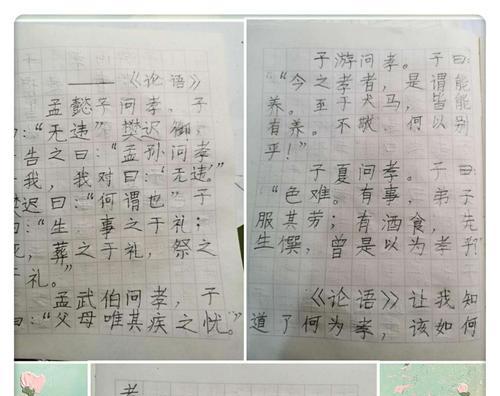 《论语》
孟懿子问孝，子
曰：“无违”樊迟御，
告之曰：“孟孙问孝
我，我对曰：‘无违’”
樊迟曰：“何谓也”子
曰：“生，事之于礼；
死，葬之于礼，祭之
于礼。”
孟武伯问孝，子
曰：“父母唯其疾之忧。”
子游问孝。子曰：
“今之孝者，是谓能
养。至于犬马，皆能
有养。不敬，何以别
乎！”
子夏问孝。子曰：
“色难。有事，弟子
服其劳；有酒食，先
生馔，曾是以为孝乎”
《论语》让我知
道了何为孝，该如何
孝